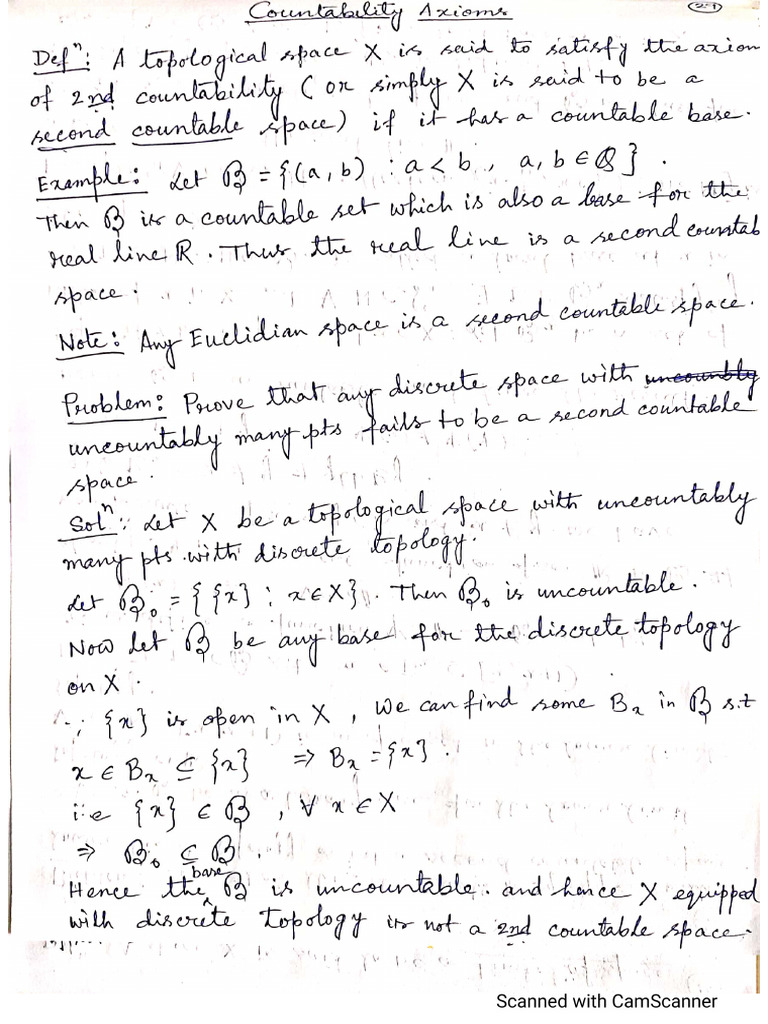 Countability Axioms
Defⁿ: A topological space X is said to satisfy the axiom
of 2nd countability (or simply X is said to be a
second countable space) if it has a countable base.
Example: Let ℬ = {(a, b) : a < b, a, b ∈ ℚ}.
Then ℬ is a countable set which is also a base for the
real line ℝ. Thus the real line is a second countab
space.
Note: Any Euclidian space is a second countable space.
Problem: Prove that any discrete space with
uncountably many pts fails to be a second countable
space.
Solⁿ: Let X be a topological space with uncountably
many pts with discrete topology.
Let ℬ₀ = {{x} : x ∈ X}. Then ℬ₀ is uncountable.
Now let ℬ be any base for the discrete topology
on X.
∵ {x} is open in X, we can find some Bₓ in ℬ s.t
x ∈ Bₓ ⊆ {x} ⇒ Bₓ = {x}.
i.e {x} ∈ ℬ, ∀ x ∈ X
⇒ ℬ₀ ⊆ ℬ.
Hence the base ℬ is uncountable. and hence X equipped
with discrete topology is not a 2nd countable space.
Scanned with CamScanner